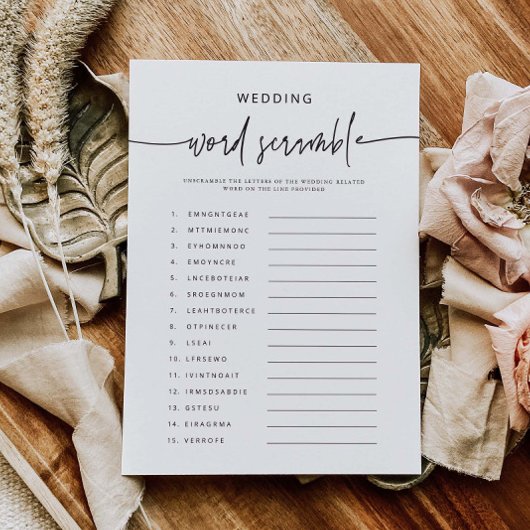 WEDDING
word scramble
UNSCRAMBLE THE LETTERS OF THE WEDDING RELATED
WORD ON THE LINE PROVIDED
1. EMNGNTGEAE
2. MTTMIEMONC
3. EYHOMNNDO
4. EMOYNCRE
5. LNCEBOTEIAR
6. SROEGNMOM
7. LEAHTBOTERCE
8. OTPINECER
9. LSEAI
10. LFRSEWO
11. IVINTNOAIT
12. IRMSDSABDIE
13. GSTESU
14. EIRAGRMA
15. VERROFE